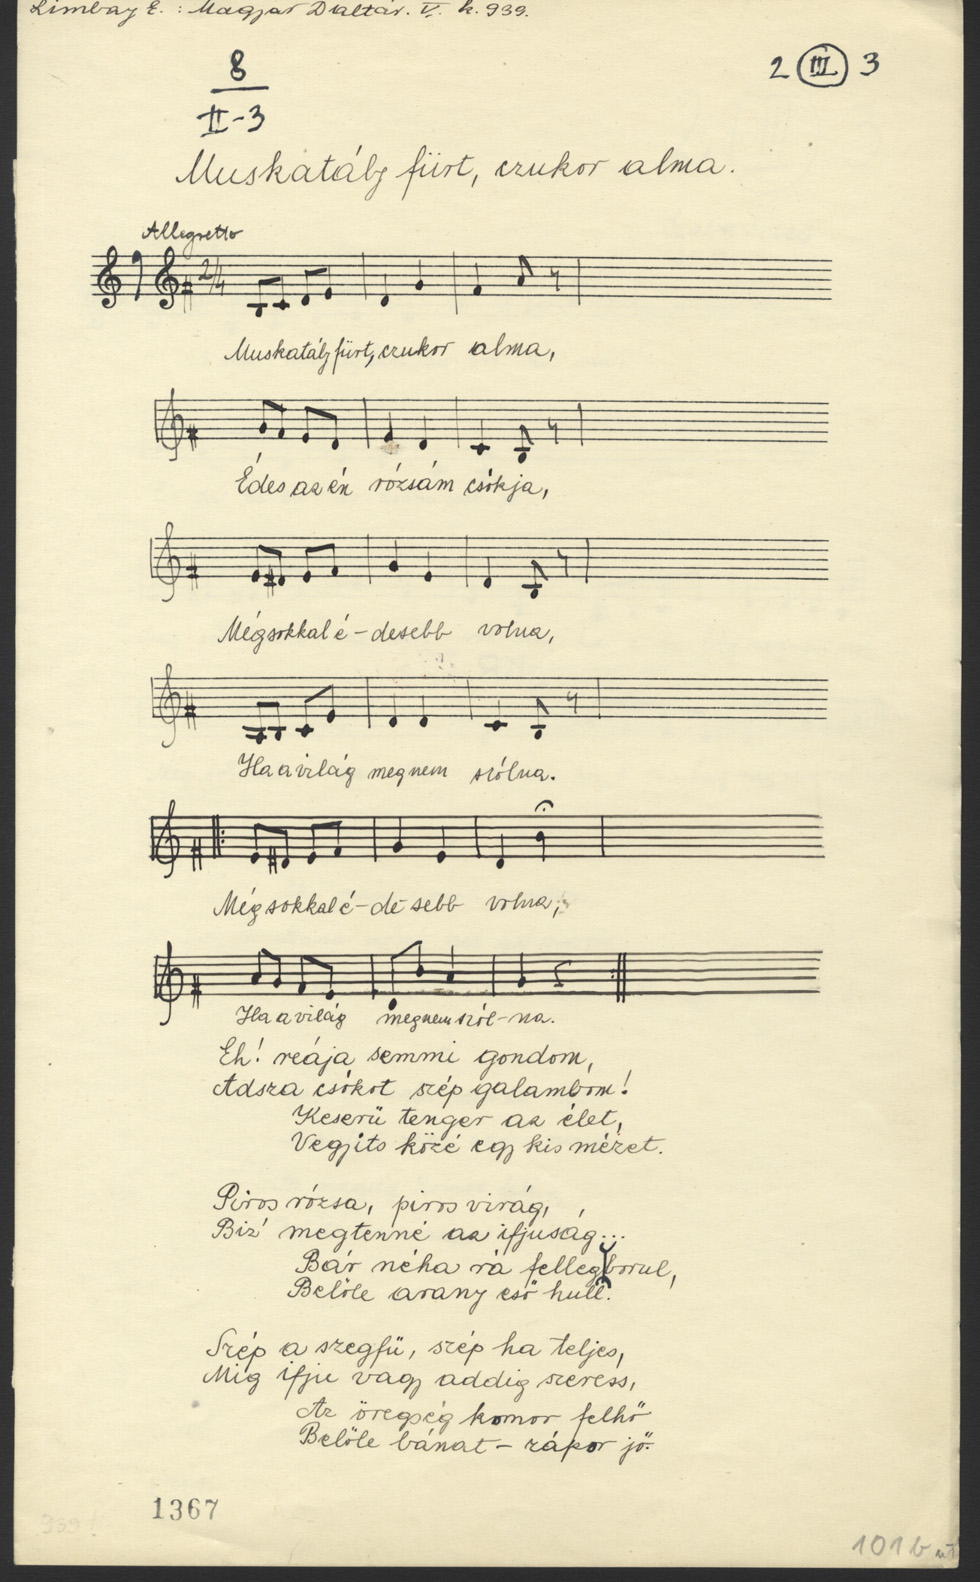 Limbay E. : Magyar Daltár. V. k. 939.
8
II-3
2 III 3
Muskatály fürt, czukor alma.
Allegretto
2/4
Muskatály fürt, czukor alma,
Édes az én rózsám csókja,
Mégsokkal é-desebb volna,
Ha a világ meg nem szólna.
Még sokkal é-de sebb volna,
Ha a világ meg nem szól-na.
Eh! reája semmi gondom,
Adsza csókot szép galambom!
Keserü tenger az élet,
Vegyits közé egy kis mézet.
Piros rózsa, piros virág,
Biz' megtenné az ifjuság...
Bár néha rá felleg borul,
Belőle arany eső hull.
Szép a szegfü, szép ha teljes,
Mig ifju vagy addig szeress,
Az öregség komor felhő
Belőle bánat - zápor jő.
1367
939
101b